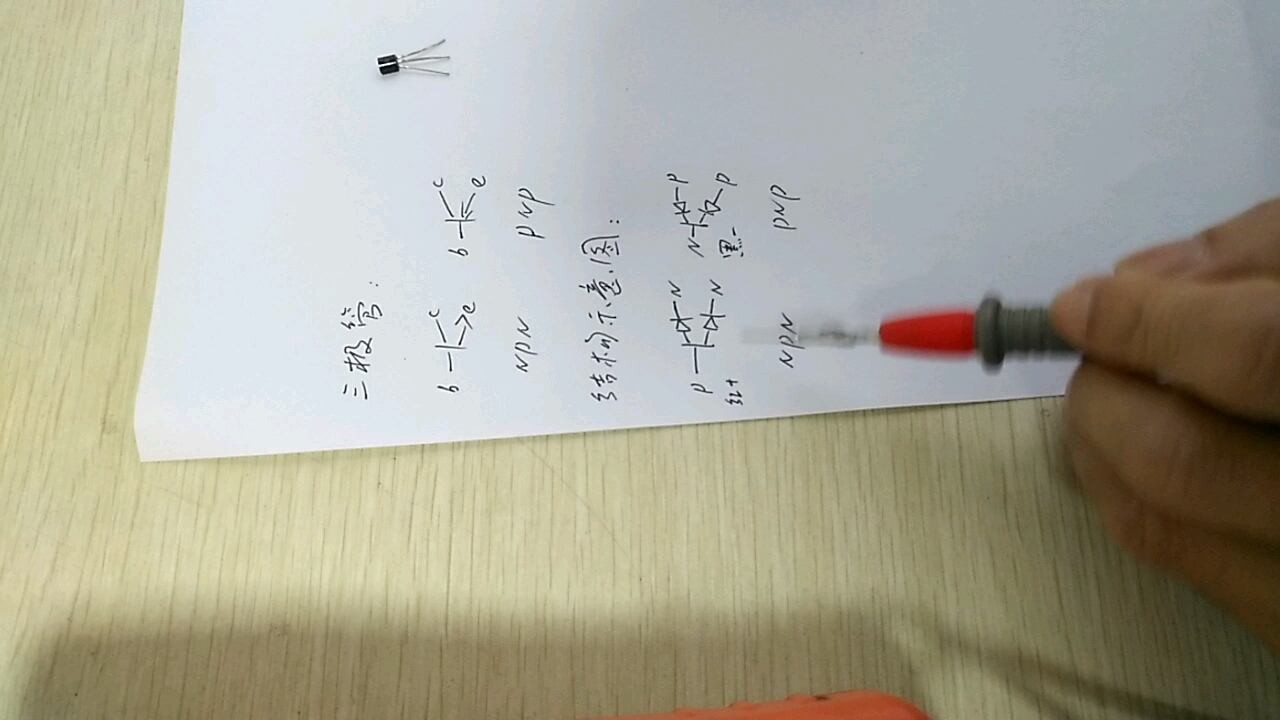 三极管：
b c e b c e
NPN PNP
结构示意图：
P N N N P P
红+ 黑-
NPN PNP